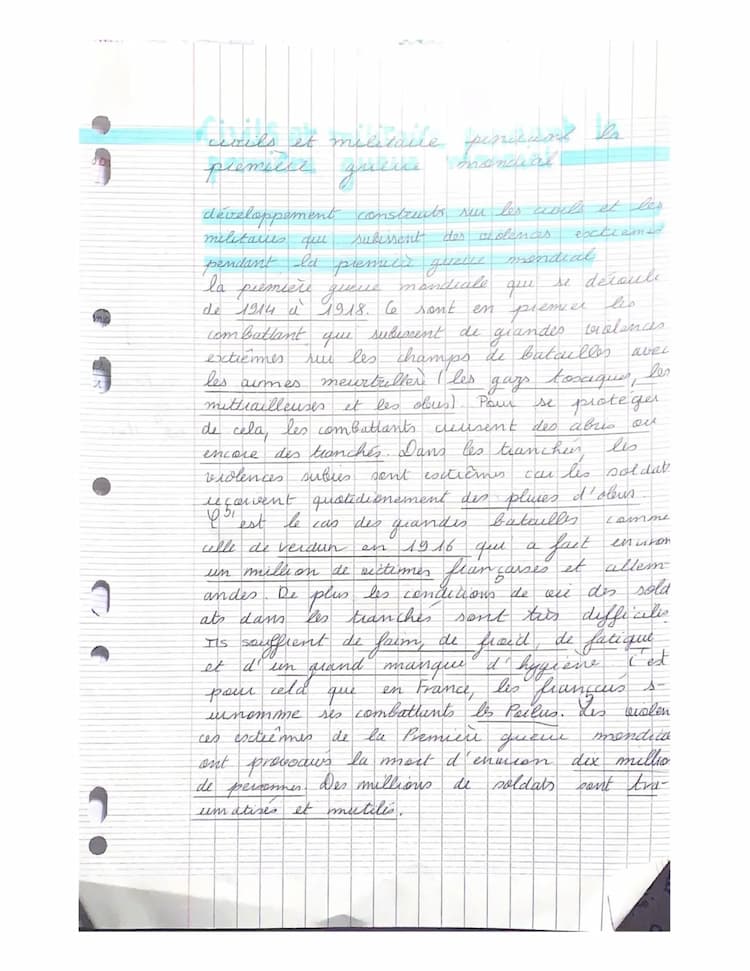 civils et militaire pendant la
première guerre mondial
développement construits sur les civils et les
militaires qui subissent des violences extrême
pendant la première guerre mondial
la première guerre mondiale qui se déroule
de 1914 à 1918. Ce sont en premier les
combattant qui subissent de grandes violences
extrêmes sur les champs de batailles avec
les armes meurtrière (les gazs toxiques, les
mitrailleuses et les obus). Pour se protéger
de cela, les combattants creusent des abris ou
encore des tranchés. Dans les tranchés, les
violences subies sont extrêmes car les soldats
reçoivent quotidiennement des pluies d'obus.
C'est le cas des grandes batailles comme
celle de verdun en 1916 qui a fait environ
un million de victimes françaises et allem-
andes. De plus les conditions de vie des sold
ats dans les tranchés sont très difficiles.
Ils souffrent de faim, de froid, de fatigue
et d'un grand manque d'hygiène. C'est
pour cela que en France, les français s-
urnomme ses combattants les Poilus. Les violen
ces extrêmes de la Première guerre mondiale
ont provoqués la mort d'environ dix millio
de personnes. Des millions de soldats sont tra-
umatisés et mutilés.